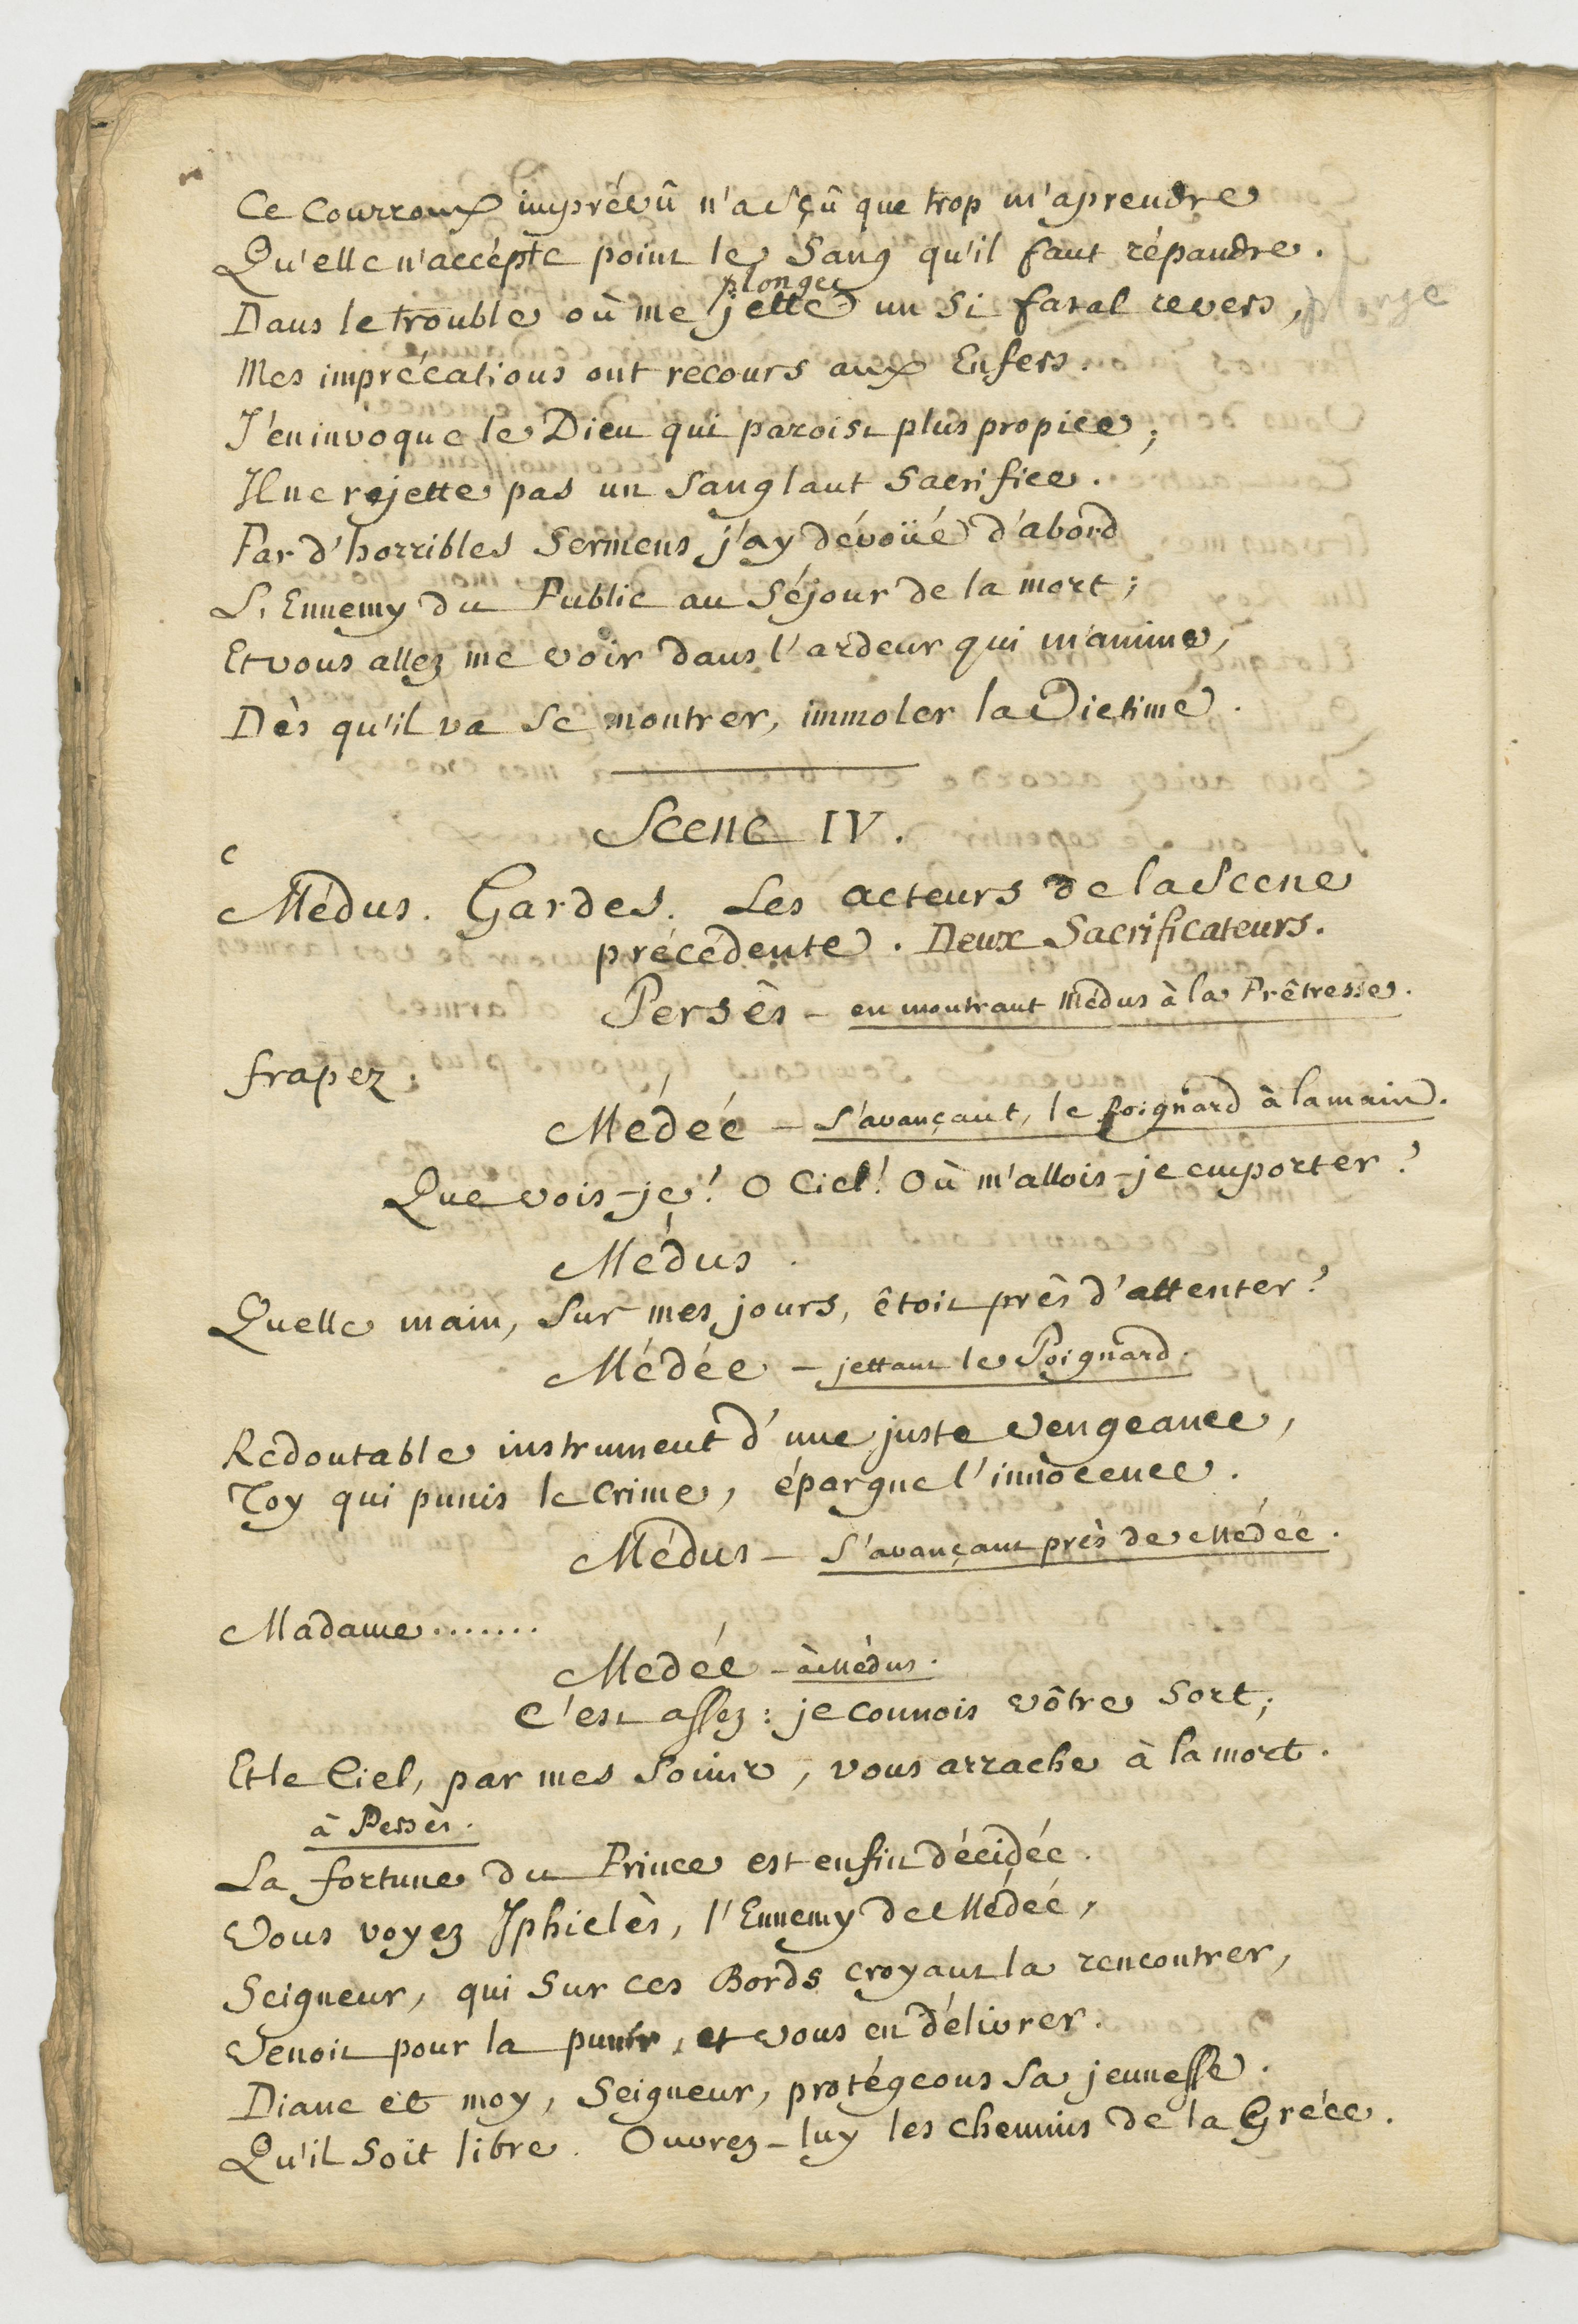 Ce Courroux imprévû n'a sçû que trop m'aprendre
Qu'elle n'accépte point le Sang qu'il faut répandre.
plonge
Dans le trouble où me jette un si fatal revers, plonge
Mes imprécations ont recours aux Enfers.
J'en invoque le Dieu qui paroist plus propice;
Il ne rejette pas un Sanglant Sacrifice.
Par d'horribles Sermens j'ay dévoüé d'abord
L'Ennemy du Public au Séjour de la mort;
Et vous allez me voir dans l'ardeur qui m'anime,
Dès qu'il va se montrer, immoler la Victime.
Scene IV.
Médus. Gardes. Les acteurs de la Scene
précédente. Deux Sacrificateurs.
Persès - en montrant Médus à la Prêtresse.
frapez.
Médée - S'avançant, le Poignard à la main.
Que vois-je! O Ciel! Où m'allois-je emporter?
Médus.
Quelle main, Sur mes jours, êtoit près d'attenter?
Médée - jettant le Poignard.
Redoutable instrument d'une juste Vengeance,
Toy qui punis le crime, épargne l'innocence.
Médus - S'avançant près de Médée.
Madame.......
Medée - à Médus.
C'est assez: je connois vôtre Sort;
Et le Ciel, par mes Soins, vous arrache à la mort.
à Persès.
La fortune du Prince est enfin décidée.
Vous voyez Iphiclès, l'Ennemy de Médée,
Seigneur, qui Sur ces Bords croyant la rencontrer,
Venoit pour la punir, et vous en délivrer.
Diane et moy, Seigneur, protégeons Sa jeunesse.
Qu'il Soit libre. Ouvrez-luy les chemins de la Gréce.